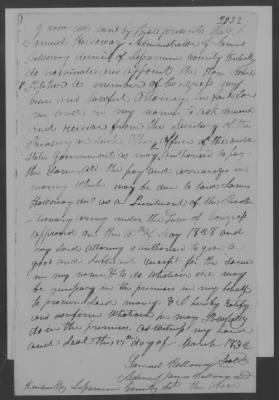 2032
Know all men by these presents that I
Samuel Holloway Administrator of James
Holloway deceased of Jessamine County Kentucky
do nominate and appoint the Hon Robert
P Letcher a member of Congress my
true and Lawful Attorney in fact for
me and in my name to ask demand
and receive from the Secretary of the
Treasury or such other officer of the united
States Government as may authorised to pay
the same all the pay and
money which may be due to said James
Holloway decd as a Lieutenant of the Revolu
tionary army under the Law of Congress
approved on the 15th of May 1828 and
my said attorney is authorised to give a
good and sufficient receipt for the same
in my name & to do whatever else may
be necessary in the premises in my behalf
to procure said money & I hereby ratify
and confirm whatever he may Lawfully
do in the premises as witness my hand
and seal this 17th day of March 1832
Samuel Holloway Seal
Admr of James Holloway decd
Kentucky Jessamine County